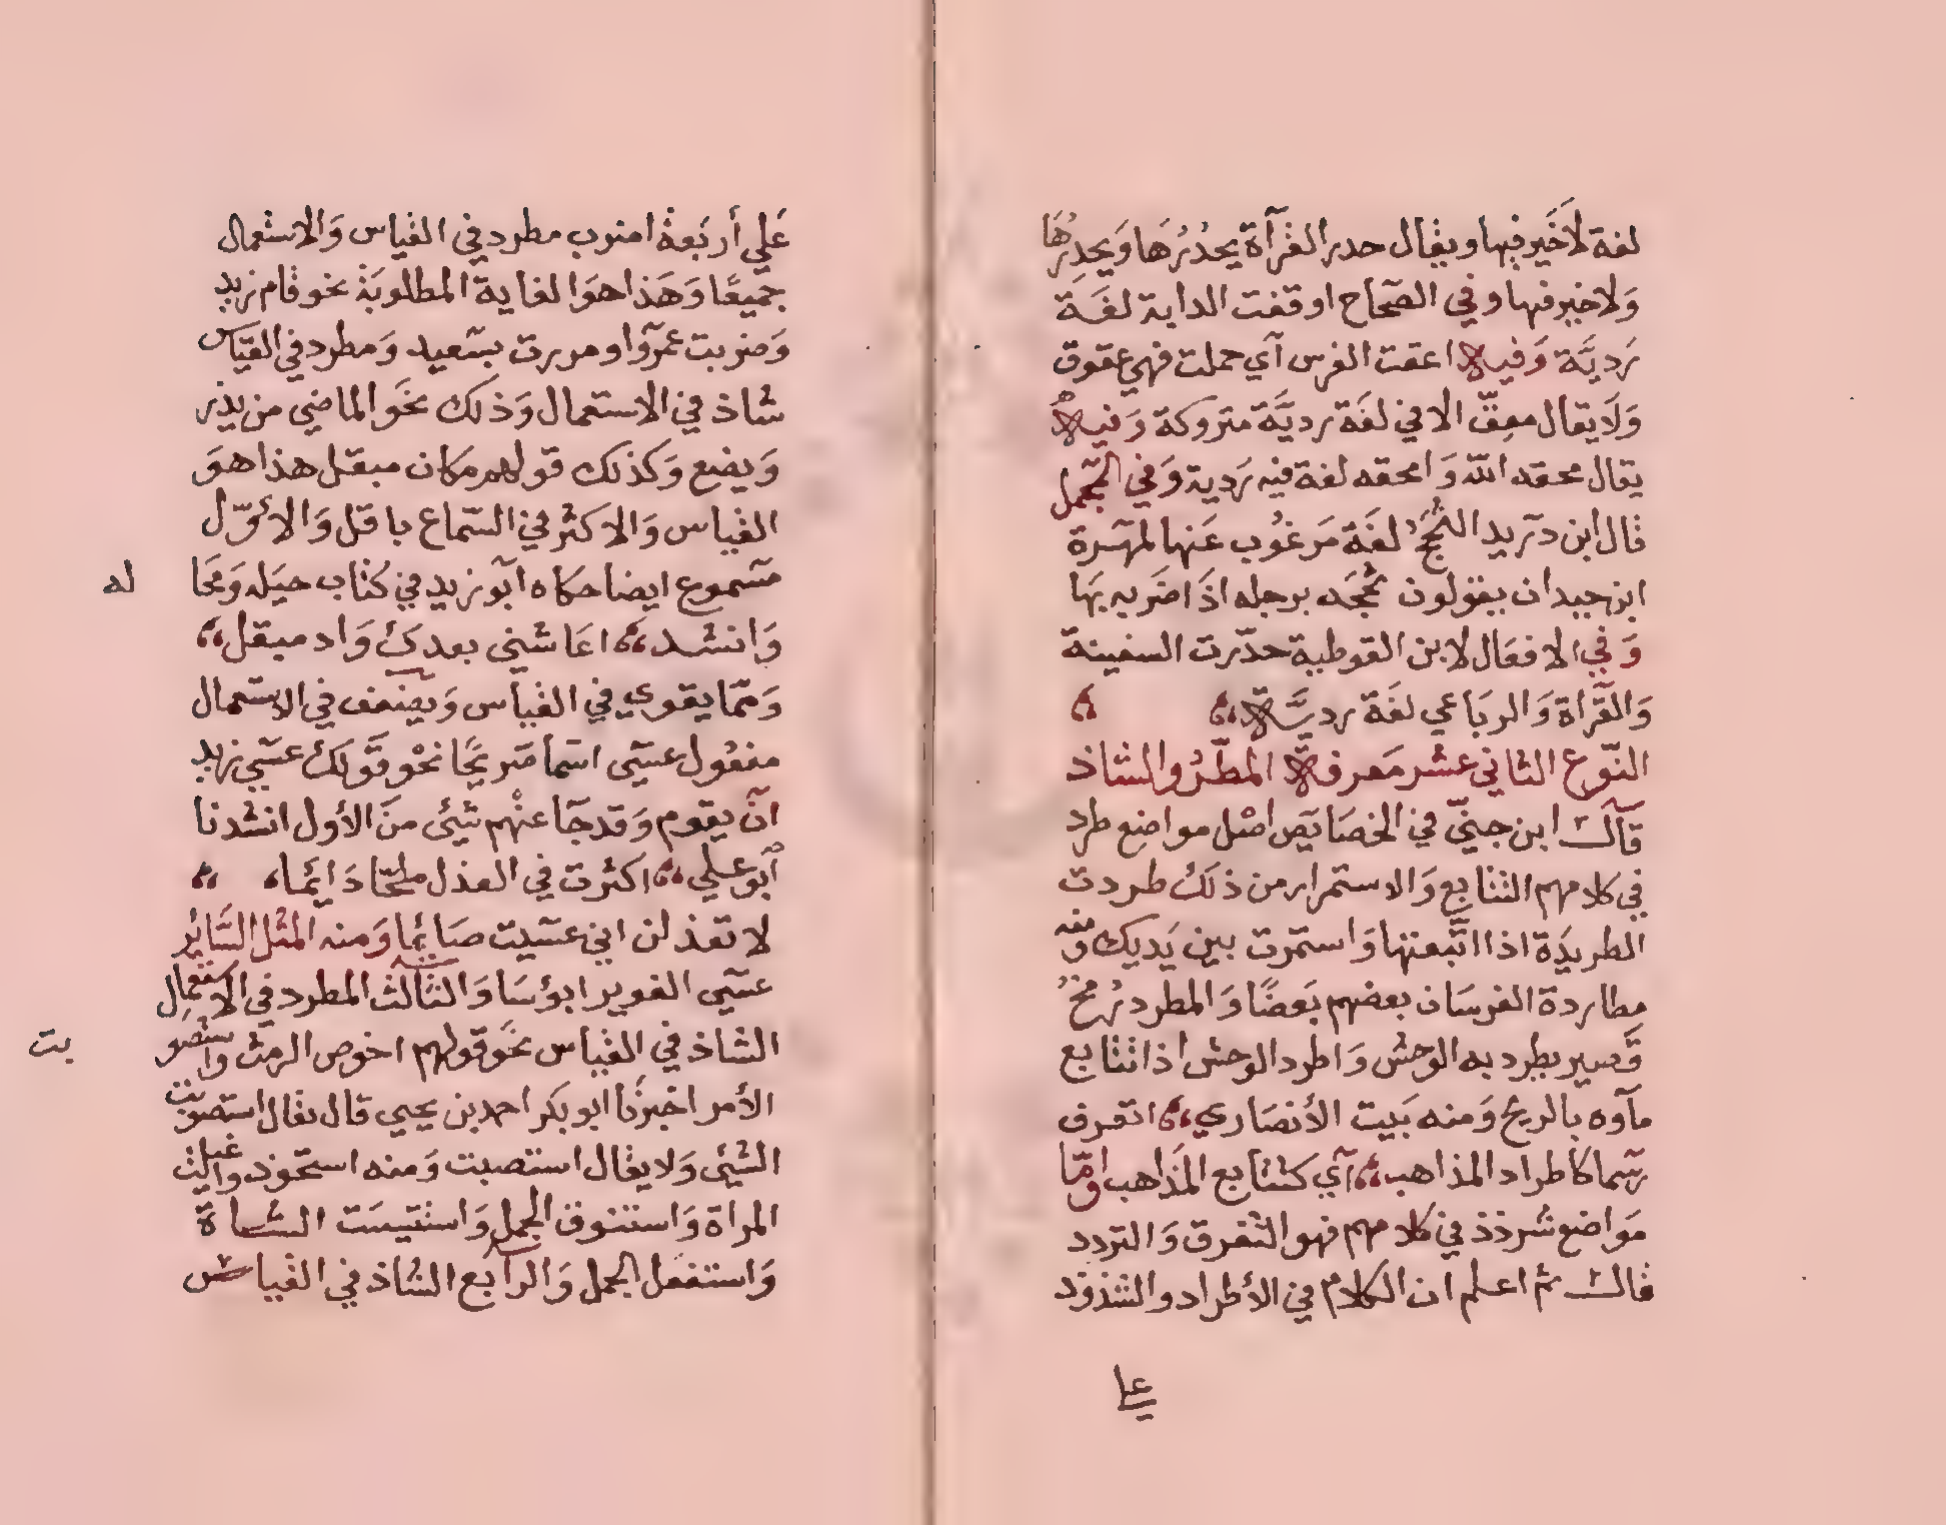 لغة لَا خَير فيها ويقال حدر القرآة يحدُرُهَا وَيحدِرُهَا
وَلا خير فيها وفي الصحاح اوقفت الدابة لغَة
رَديَّة وَفيه اعقت الفرس آي حملت فهي عقوق
وَلَا يقال معِقّ الا في لغَة رديَّة متروكة وَفيه
يقال محقه الله وَامحقه لغة فيه رَدية وَفي المجمل
قال ابن دريد الثَّجّ لغَة مَرغوُب عَنها لمهرة
ابن حيدان يقولون ثججه برجله اذَا ضَربه بهَا
وَفي الافعَال لابن القوطية حدّرت السفينة
وَالقراة وَالربَاعي لغَة رديَّة
النّوع الثاني عشر مَعرفة المطّرُد والشاذ
قآل ابن جنيّ في الخصَايَص اصْل مواضع طرد
في كلامهم التتابع وَالاستمرار من ذلكَ طردت
الطريدَة اذا اتّبعتها وَاستمرت بين يَديك وَمنه
مطاردة الفرسَان بعضهم بَعضًا وَالمطرد رُمحُ
قَصير يطرد به الوحش وَاطرد الوحش اذا تتابع
مآوه بالريح وَمنه بَيت الأنصَاري اتعرف
رسما كاطراد المذاهب آي كتتابع المَذاهب وامّا
مَواضع شرذذ في كلامهم فهو التفرق وَالتردد
قال ثم اعلم ان الكلام في الأطراد والشذوذ
علي
عَلي أربَعة اضرب مطرد في القياس وَالاستعمال
جميعًا وَهَذا هوَ الغاية المطلوبَة نحو قام زيد
وَضربت عمرَوا ومررت بسَعيد وَمطرد في القيَاس
شاذ في الاستعمال وَذلكَ نحَو الماضي من يذر
وَيضع وَكذلك قولهم مَكان مبقل هذا هوَ
القياس وَالاكثر في السّماع باقل وَالأوّل
مسَموع ايضا حكاه آبو زيد في كتاب حيَله وَمحَا له
وَانشد اعَاشني بعدكَ وَاد مبقل
وَممّا يقوي في القياس وَيضعف في الاستعمال
مفعُول عسَى اسَما صَريحًا نحْو قَولكَ عسَي زيد
انَ يقوم وَقد جَا عنْهم شيئ منَ الأول انشدنا
آبو علي اكثرت في العذل ملحّا دَائمَا
لا تعذلن اني عسَيت صَائما وَمنه المثل السَّائر
عسَي الغوير ابؤسَا وَالثالث المطرد في الاستعمال
الشاذ في القياس نحَو قولهم اخوص الرمث واستصو بت
الأمر اخبرَنا ابو بكر احمد بن يحيي قال يقال استصوبت
الشيئ وَلا يقال استصبت وَمنه استحَوذ واغيلت
المراة وَاستنوق الجمل وَاستتيسَت الشاة
وَاستفعل الجمل وَالرابع الشاذ في القياس